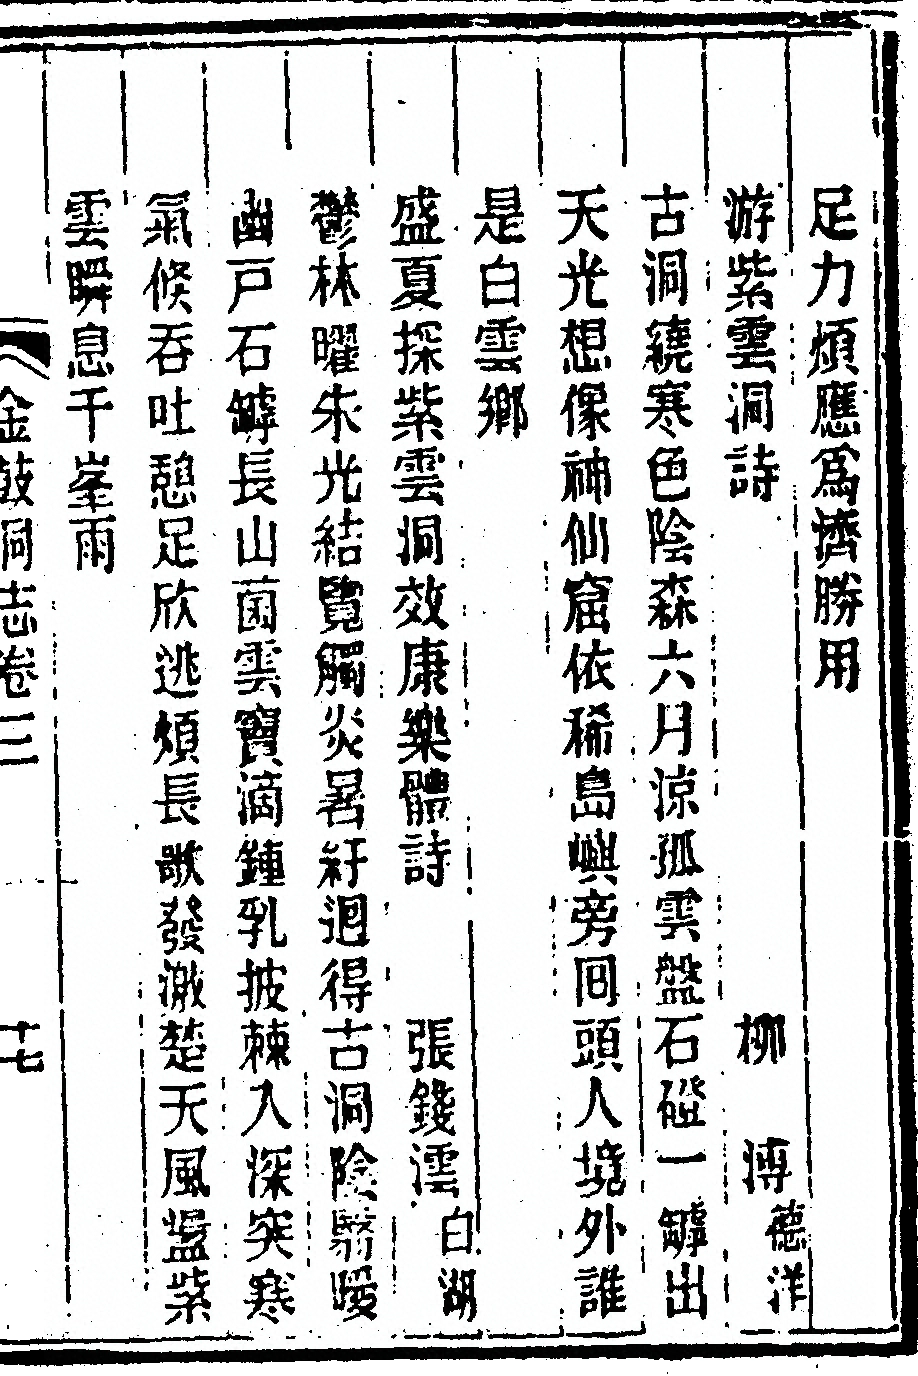 足力煩應爲濟勝用
游紫雲洞詩 柳 溥 德洋
古洞繞寒色陰森六月涼孤雲盤石磴一罅出
天光想像神仙窟依稀島嶼旁囘頭人境外誰
是白雲鄉
盛夏探紫雲洞效康樂體詩 張錢澐 白湖
鬱林曜朱光結覽觸炎暑紆迴得古洞陰翳曖
幽戸石罅長山菌雲竇滴鍾乳披棘入深突寒
氣候吞吐憩足欣逃煩長歌發激楚天風盪紫
雲瞬息千峯雨
金鼓洞志卷三 十七